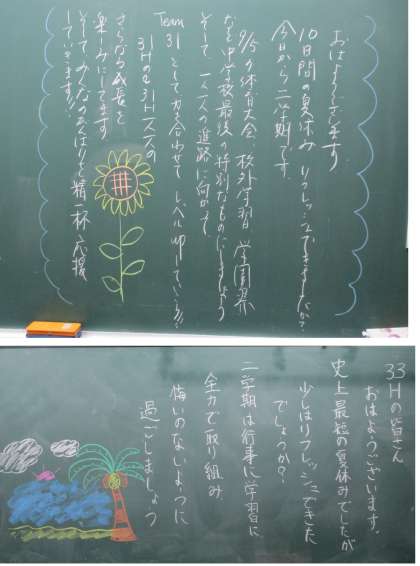 おはようございます。
10日間の夏休み リフレッシュできましたか?
今日から二学期です。
9/5の体育大会、校外学習、学園祭
など中学校最後の特別なものにしましょう
そして、一人一人の進路に向かって
Team 31として力を合わせて レベルupしていこう!!
31Hと31H一人一人の
さらなる成長を
楽しみにしてます
そしてみんなのがんばりを精一杯応援
していきます!!
33Hの皆さん
おはようございます。
史上最短の夏休みでしたが
少しはリフレッシュできた
でしょうか?
二学期は行事に学習に
全力で取り組み
悔いのないように
過ごしましょう